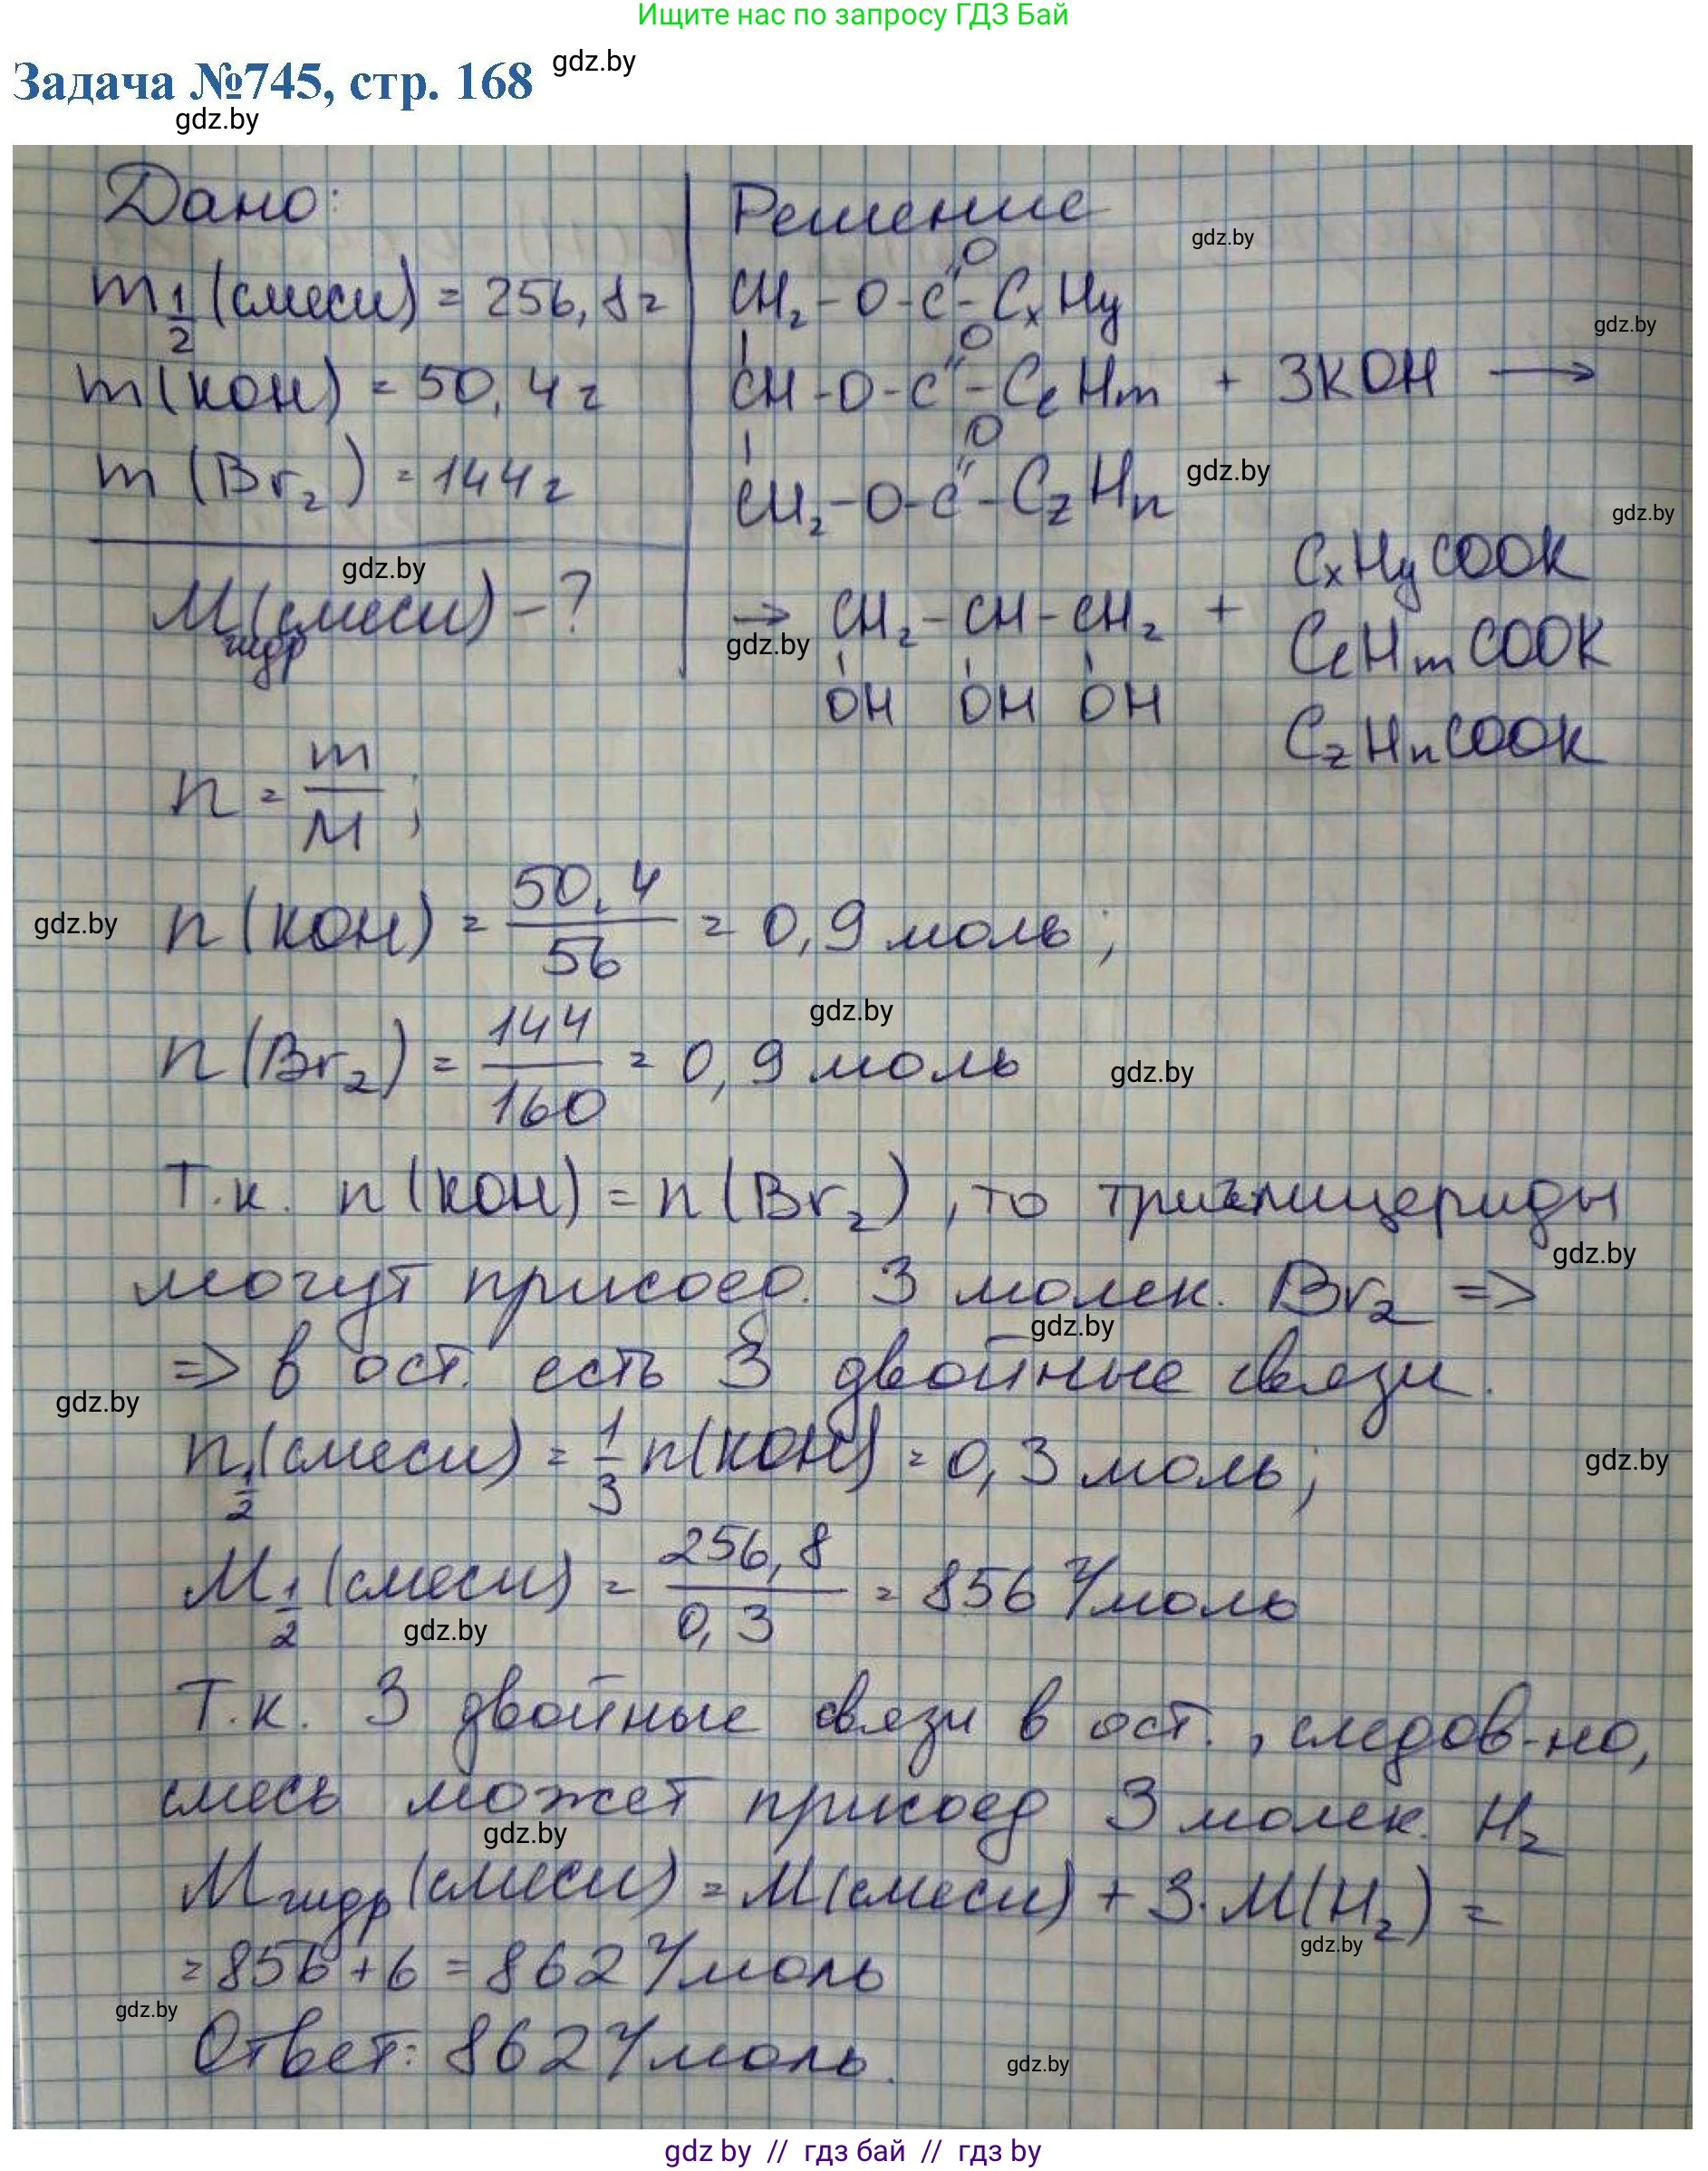 Ищите нас по запросу ГДЗ Бай
Задача №745, стр. 168
gdz.by
gdz.by
Дано:
m½(смеси) = 256,8 г
m(KOH) = 50,4 г
m(Br₂) = 144 г
gdz.by
Mгидр(смеси) - ?
Решение
gdz.by
O
CH₂-O-C-CₓHy
gdz.by
O
CH-O-C-CₑHm + 3KOH →
O
CH₂-O-C-CzHn
gdz.by
gdz.by
→ CH₂-CH-CH₂ +
OH OH OH
gdz.by
CₓHyCOOK
CₑHmCOOK
CzHnCOOK
n = m/M;
gdz.by
n(KOH) = 50,4/56 = 0,9 моль;
gdz.by
n(Br₂) = 144/160 = 0,9 моль
gdz.by
Т.к. n(KOH) = n(Br₂), то триглицериды
gdz.by
могут присоед. 3 молек. Br₂ =>
gdz.by
=> в ост. есть 3 двойные связи.
gdz.by
n½(смеси) = 1/3 n(KOH) = 0,3 моль;
gdz.by
M½(смеси) = 256,8/0,3 = 856 г/моль
gdz.by
Т.к. 3 двойные связи в ост., следов-но,
смесь может присоед 3 молек. H₂
gdz.by
Mгидр(смеси) = M(смеси) + 3·M(H₂) =
gdz.by
= 856 + 6 = 862 г/моль
gdz.by
Ответ: 862 г/моль.
gdz.by
gdz by // гдз бай // гдз by